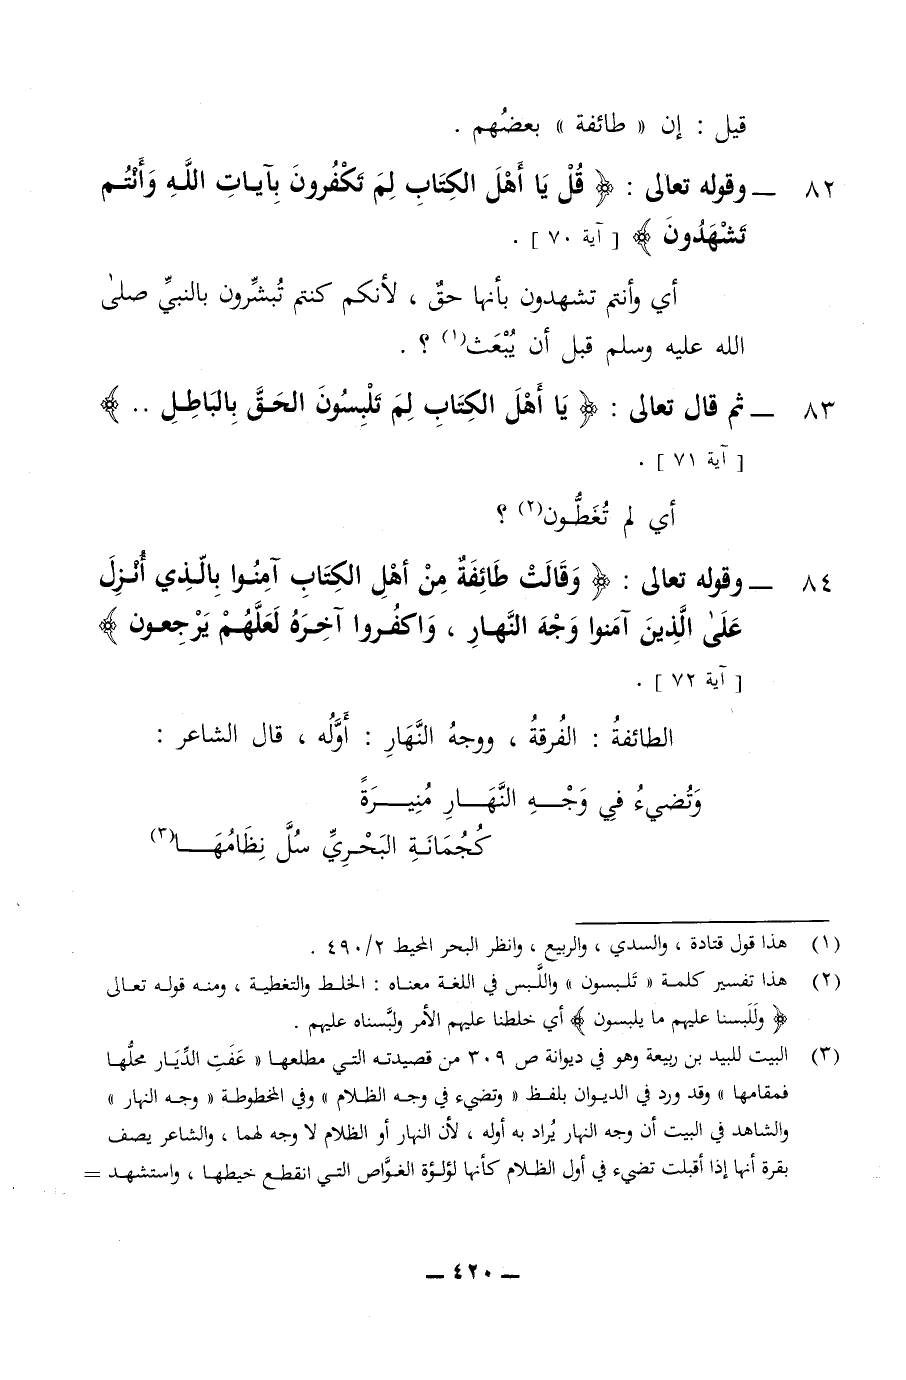 قيل : إن « طائفة » بعضُهم .
٨٢ ــ وقوله تعالى : ﴿ قُلْ يَا أَهْلَ الكِتَابِ لِمَ تَكْفُرونَ بِآيـاتِ اللَّـهِ وَأَنْتُـم
تَشْهَدُونَ ﴾ [ آية ٧٠ ] .
أي وأنتم تشهدون بأنها حقٌ ، لأنكم كنتم تُبشِّرون بالنبيِّ صلىٰ
الله عليه وسلم قبل أن يُبْعَث(١) ؟ .
٨٣ ــ ثم قال تعالى : ﴿ يَا أَهْلَ الكِتَابِ لِمَ تَلْبِسُونَ الحَقَّ بِالبَاطِلِ .. ﴾
[ آية ٧١ ] .
أي لم تُغَطُّون(٢) ؟
٨٤ ــ وقوله تعالى : ﴿ وَقَالَتْ طَائِفَةٌ مِنْ أهْلِ الكِتَابِ آمِنُوا بِالّذِي أُنْزِلَ
عَلَىٰ الَّذِينَ آمَنوا وَجْهَ النَّهارِ ، وَاكفُروا آخِرَهُ لَعَلَّهُمْ يَرْجِعون ﴾
[ آية ٧٢ ] .
الطائفةُ : الفُرقةُ ، ووجهُ النَّهَارِ : أَوَّلُه ، قال الشاعر :
وَتُضيءُ فِي وَجْـــهِ النَّهَــارِ مُنِيــرَةً
كَجُمَانَةِ البَحْرِيِّ سُلَّ نِظَامُهَـــا(٣)
(١) هذا قول قتادة ، والسدي ، والربيع ، وانظر البحر المحيط ٤٩٠/٢ .
(٢) هذا تفسير كلمة « تَلبسون » واللَّبس في اللغة معناه : الخلط والتغطية ، ومنه قوله تعالى
﴿ وَلَلَبسنا عليهم ما يلبسون ﴾ أي خلطنا عليهم الأمر ولبَّسناه عليهم .
(٣) البيت للبيد بن ربيعة وهو في ديوانة ص ٣٠٩ من قصيدته التي مطلعها « عَفَتِ الدِّيَار محلُّها
فمقامها » وقد ورد في الديوان بلفظ « وتضيء في وجه الظلام » وفي المخطوطة « وجه النهار »
والشاهد في البيت أن وجه النهار يُراد به أوله ، لأن النهار أو الظلام لا وجه لهما ، والشاعر يصف
بقرة أنها إذا أقبلت تضيء في أول الظلام كأنها لؤلؤة الغوَّاص التي انقطع خيطها ، واستشهد =
ــ ٤٢٠ ــ